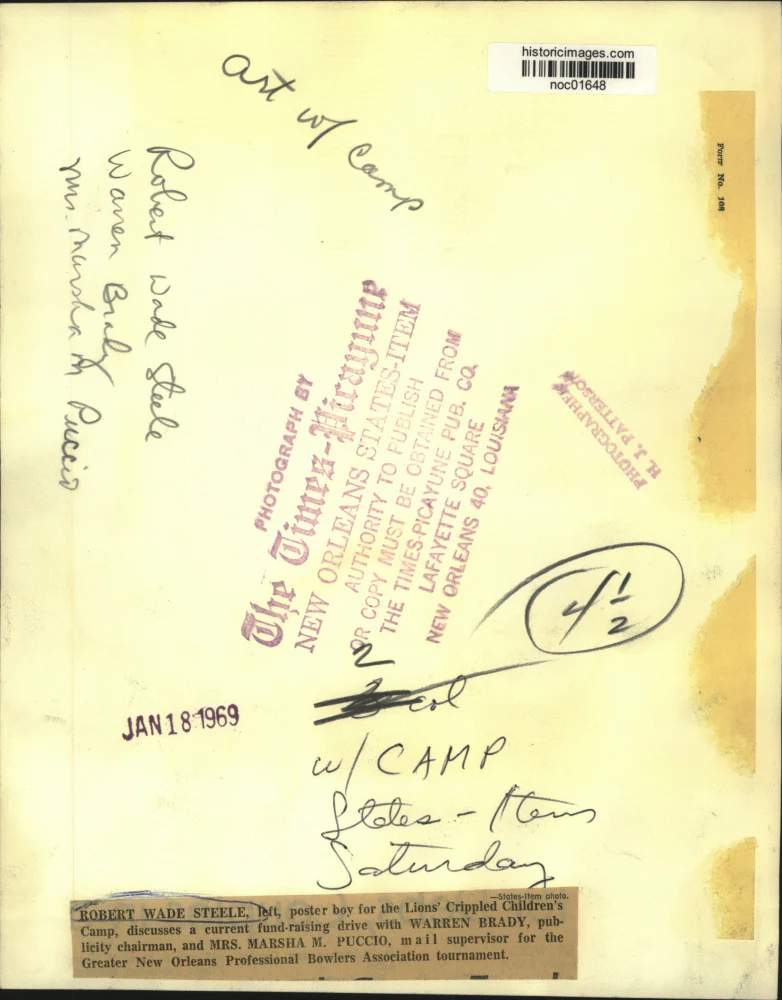 historicimages.com
noc01648
Art w/ Camp
Form No. 108
Robert Wade Steele
Warren Brady
Mrs. Marsha M Puccio
PHOTOGRAPH BY
The Times-Picayune
NEW ORLEANS STATES-ITEM
AUTHORITY TO PUBLISH
OR COPY MUST BE OBTAINED FROM
THE TIMES-PICAYUNE PUB. CO.
LAFAYETTE SQUARE
NEW ORLEANS 40, LOUISIANA
PHOTOGRAPHER
H. J. PATTERSON
4 1/2
2
col
JAN 18 1969
w/ CAMP
States-Item
Saturday
—States-Item photo.
ROBERT WADE STEELE, left, poster boy for the Lions' Crippled Children's
Camp, discusses a current fund-raising drive with WARREN BRADY, pub-
licity chairman, and MRS. MARSHA M. PUCCIO, mail supervisor for the
Greater New Orleans Professional Bowlers Association tournament.